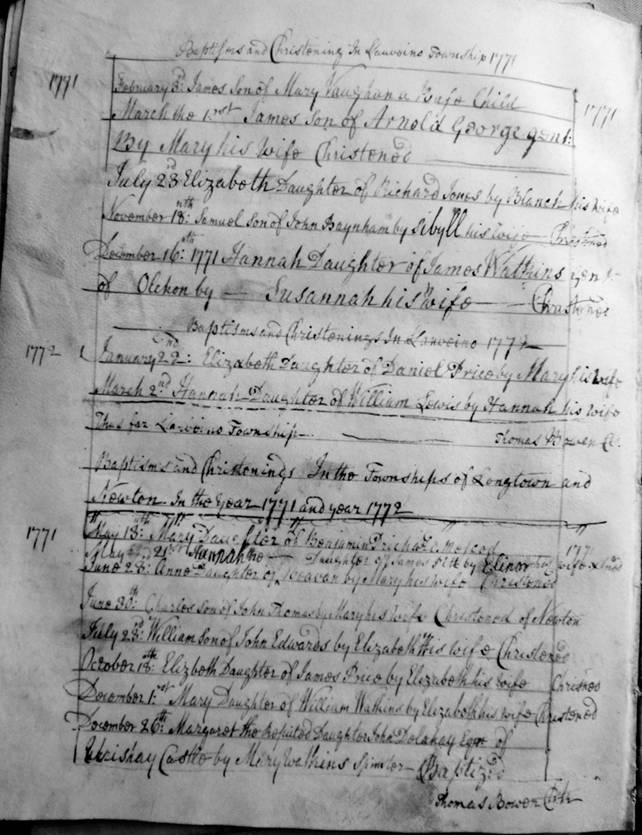 Baptisms and Christening In Lanveino Township 1771
1771 February 3d: James Son of Mary Vaughan a Base Child 1771
March the 1rst James son of Arnold George gent:
By Mary his Wife Christened
July 23d Elizabeth Daughter of Richard Jones by Blanch his Wife
November 18:nth Samuel son of John Baynham by Sibyll his wife Christened
December 16:nth 1771 Hannah Daughter of James Watkins gent
of Olchon by Susannah his Wife Christened
Baptisms and Christenings In Lanveino 1772
1772 January 22:nd Elizabeth Daughter of Daniel Price by Mary his Wife
March 2nd Hannah Daughter of William Lewis by Hannah his Wife
Thus for Lanveino Township Thomas Bowen
Baptisms and Christenings In the Townships of Longtown and
Newton In the Year 1771 and year 1772
1771 May 18:nth Mary Daughter of Benjamin 1771
May 21st Hannah Daughter of James by Elinor his wife
June 28: Anne Daughter of by Mary his wife Christened
June 30:th Charles son of John Thomas by Mary his Wife Christened of Newton
July 28: William son of John Edwards by Elizabeth his wife Christened
October 18:th Elizbeth Daughter of James Price by Elizabeth his wife
December 1:rst Mary Daughter of William Watkins by Elizabeth his wife Christened
December 26:th Margaret the Reputed Daughter John Delahay Esqr of
Castle by Mary Watkins Spinster Baptized
Thomas Bowen